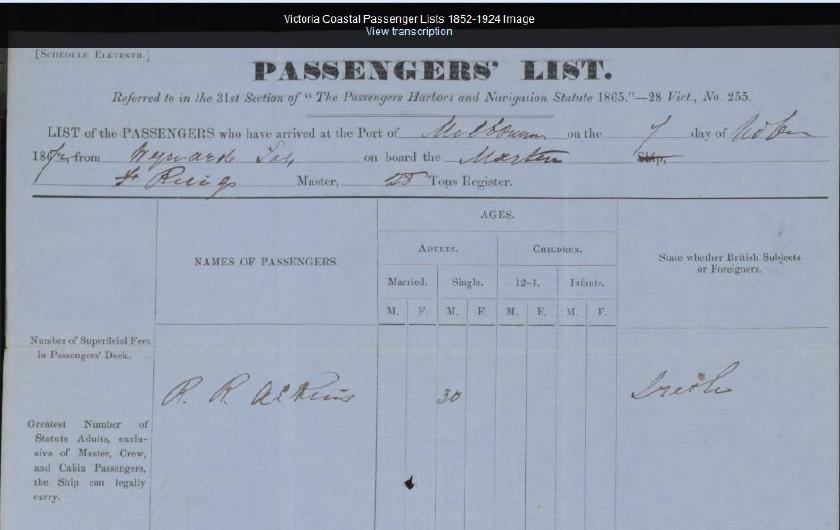 Victoria Coastal Passenger Lists 1852-1924 Image
View transcription
[Schedule Eleventh.]
PASSENGERS' LIST.
Referred to in the 31st Section of "The Passengers Harbors and Navigation Statute 1865."—28 Vict., No. 255.
LIST of the PASSENGERS who have arrived at the Port of Melbourne on the 7 day of
186 from Wynyard on board the Ship,
Master, 28 Tons Register.
AGES.
NAMES OF PASSENGERS.
Adults. Children.
State whether British Subjects
or Foreigners.
Married. Single. 12-1. Infants.
M. F. M. F. M. F. M. F.
Number of Superficial Feet
in Passengers' Deck.
R. R. Atkins 30 Irish
Greatest Number of
Statute Adults, exclu-
sive of Master, Crew,
and Cabin Passengers,
the Ship can legally
carry.